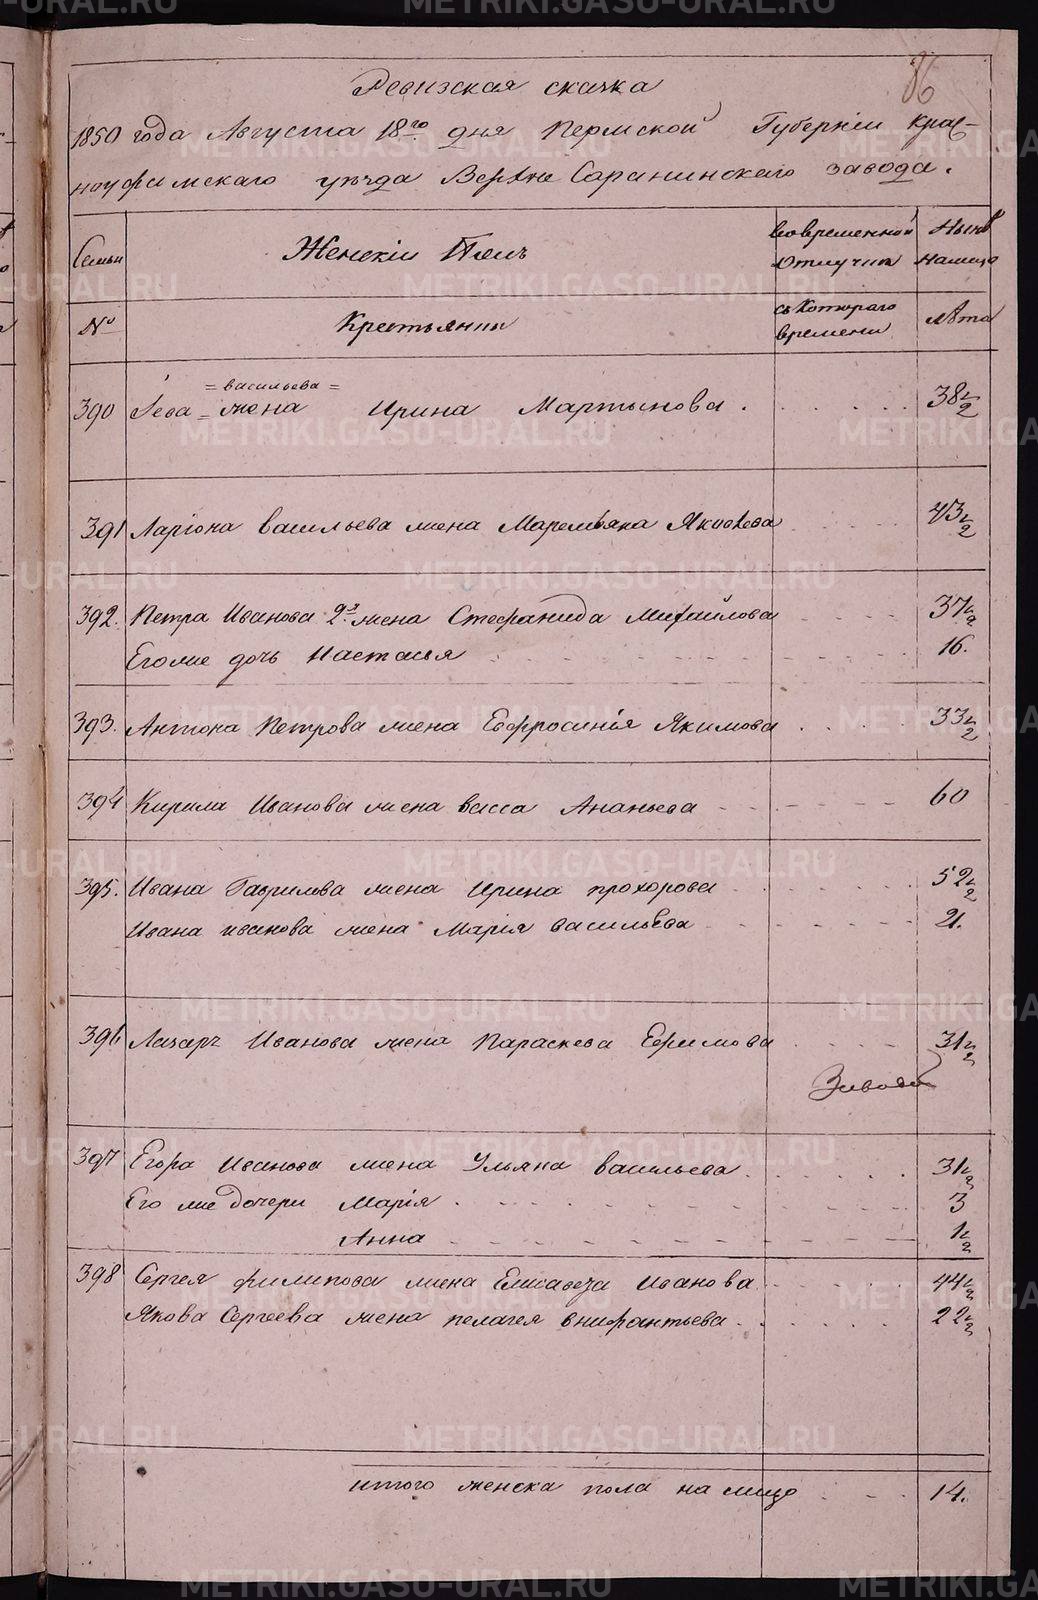 86
Ревизская скачка
1850 года Августа 18го дня Пермской Губернiи Крас-
ноуфимскаго уезда Верхне Саранинскаго завода.
Семьи
Женскiи Полъ
во временной отлучки
Ныне налицо
№
Крестьянии
съ Котораго времени
лѣта
= васильева =
390 Iева = жена Ирина Мартынова . 38 1/2
391 Ларiона васильева жена Маремьяна Яковлева 43 1/2
392. Петра Иванова 2я жена Стефанида Михайлова 37 1/2
Его же дочь Настасья 16.
393. Антона Петрова жена Евфросинiя Якимова 33 1/2
394 Кирила Иванова жена васса Ананьева 60
395. Ивана Гаврилова жена Ирина прохорова 52 1/2
Ивана иванова жена Марiя васильева 21.
396 Лазарь Иванова жена Параскева Ефимова 31 1/2
397 Егора Иванова жена Ульяна васильева 31 1/2
Его же Дочери Марiя 3
Анна 1 1/2
398 Сергея филипова жена Елисавеза Иванова 44 1/2
Якова Сергеева жена пелагея внифантьева 22 1/2
итого женска пола на лицо 14.
METRIKI.GASO-URAL.RU